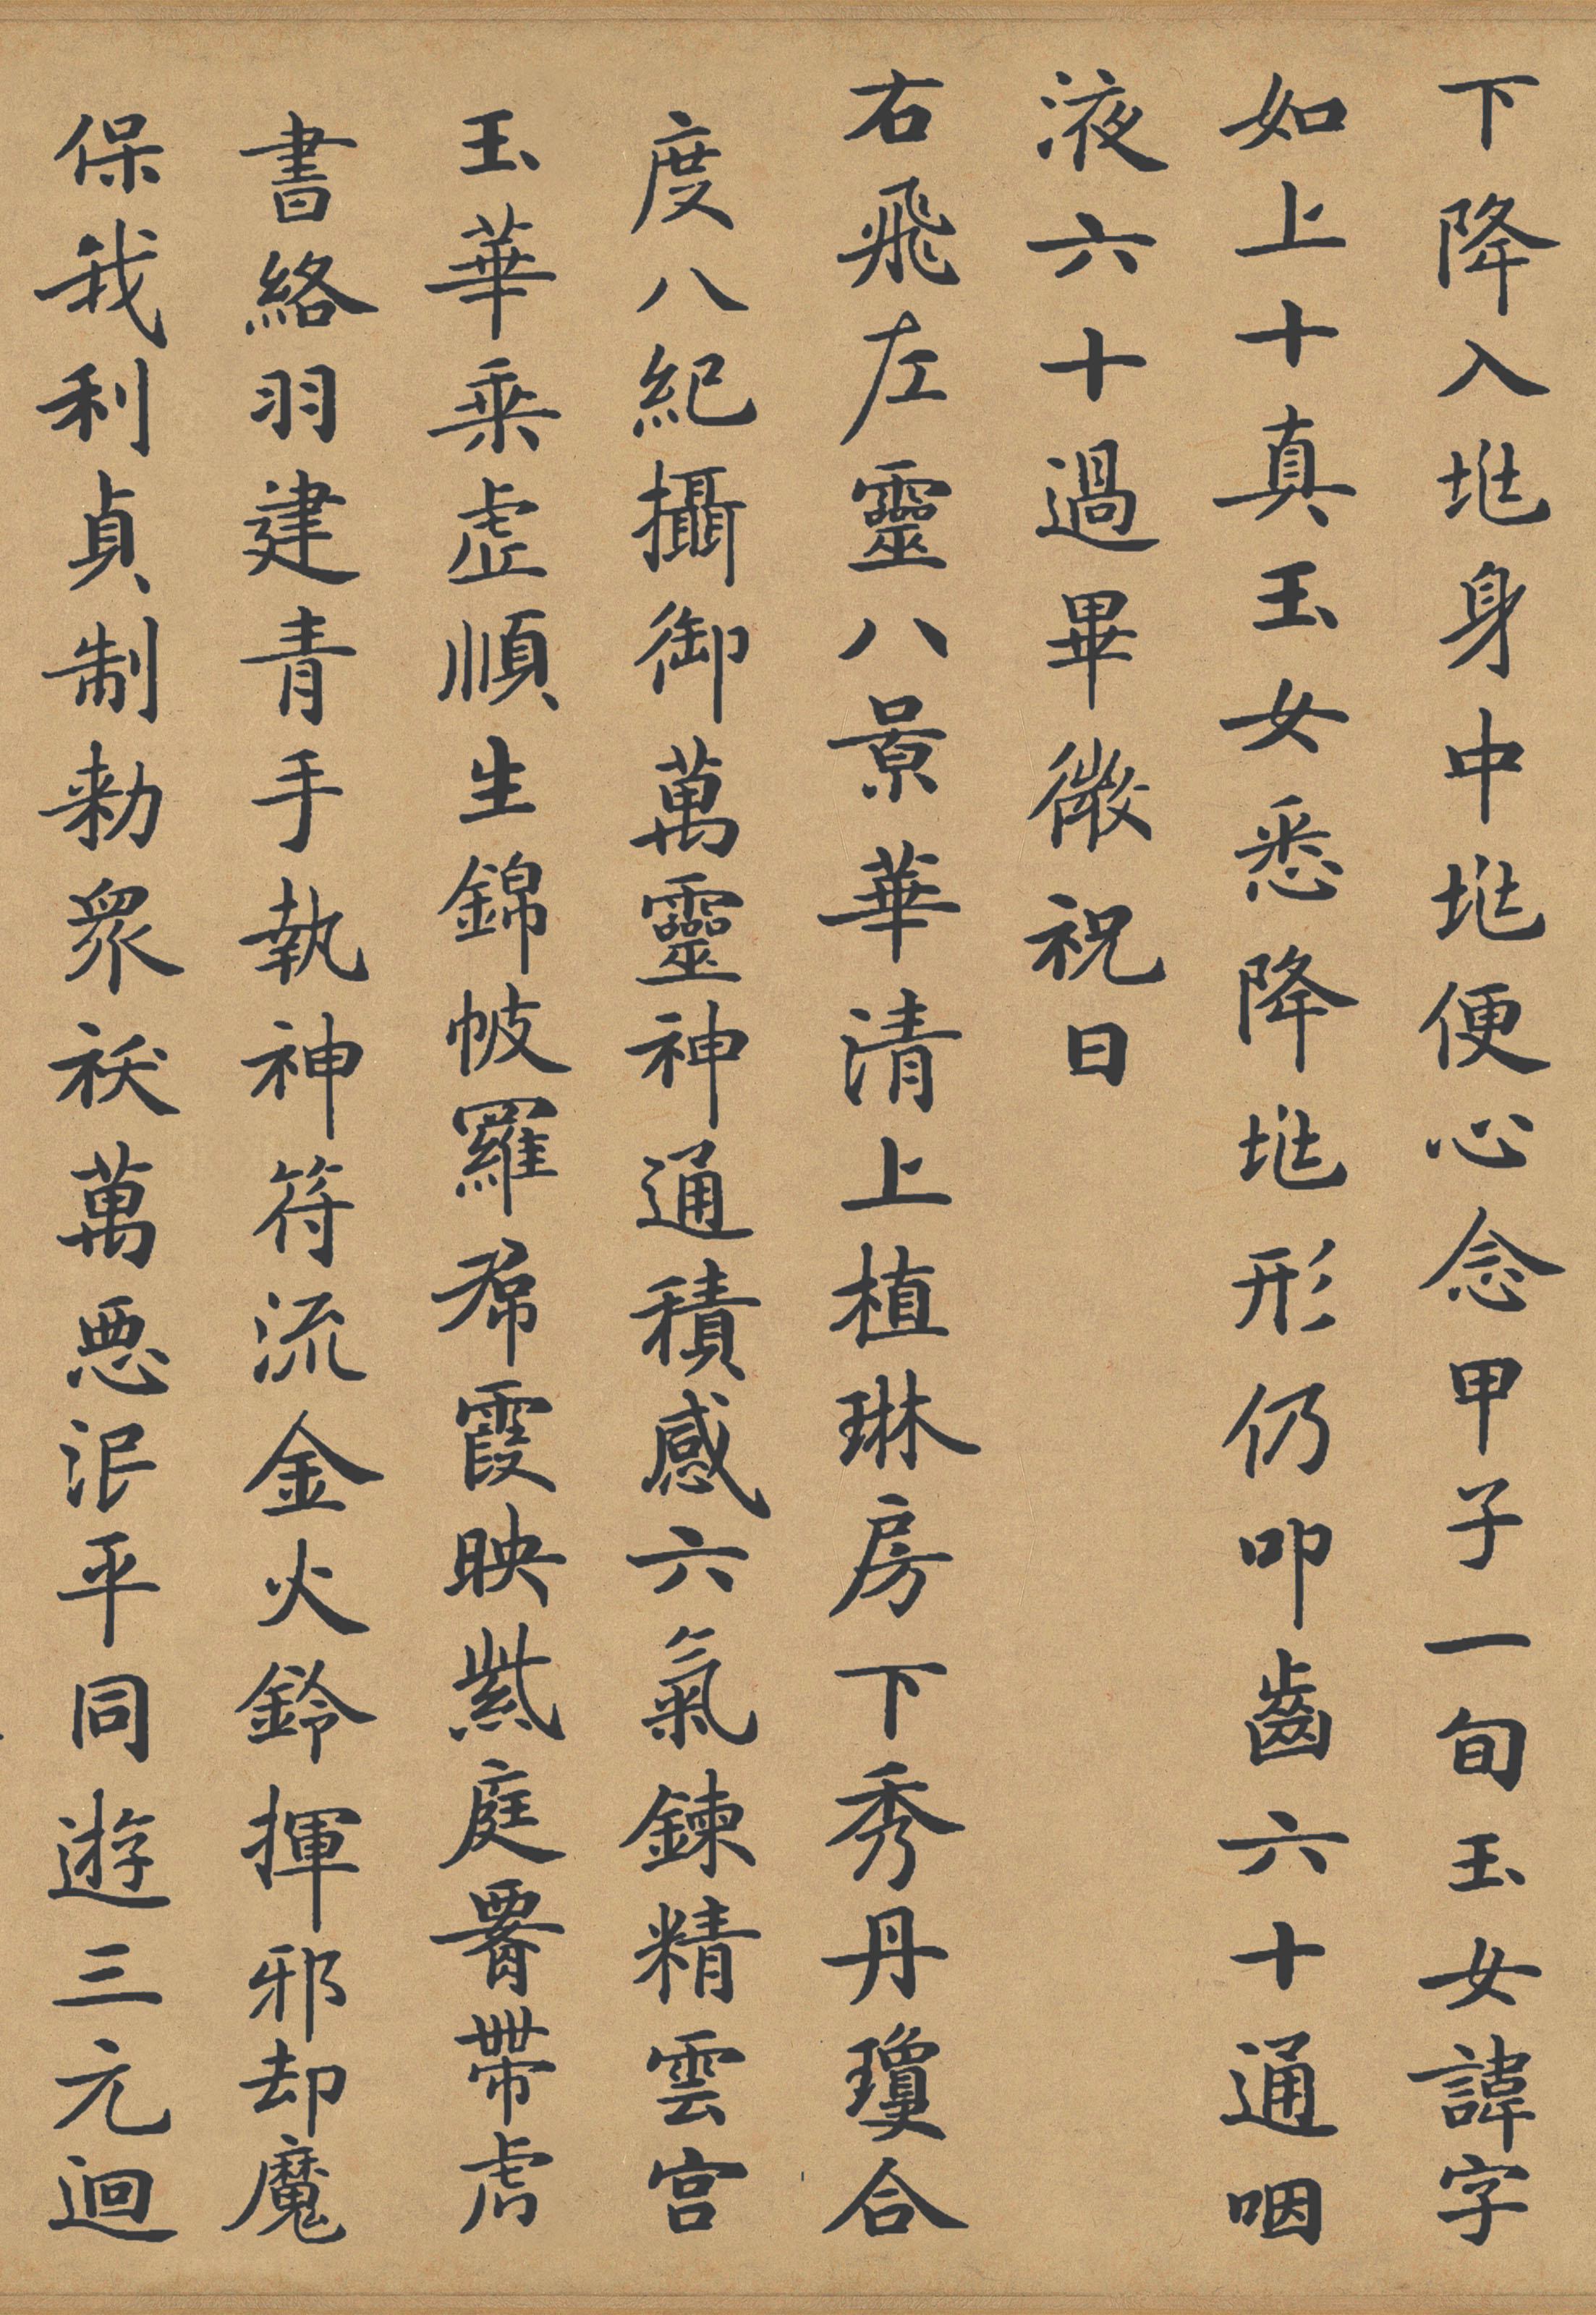 下降入垗身中垗便心念甲子一旬玉女諱字
如上十真玉女悉降垗形仍叩齒六十通咽
液六十過畢微祝曰
右飛左靈八景華清上植琳房下秀丹瓊合
度八紀攝御萬靈神通積感六氣鍊精雲宮
玉華乘虛順生錦帔羅帬霞映紫庭腎帶虎
書絡羽建青手執神符流金火鈴揮邪却魔
保我利貞制勑眾祅萬惡泯平同遊三元迴